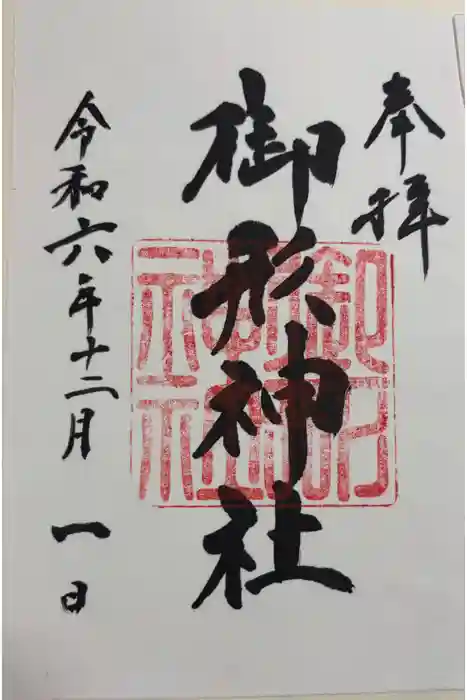 奉拝
御形神社
令和六年十二月一日